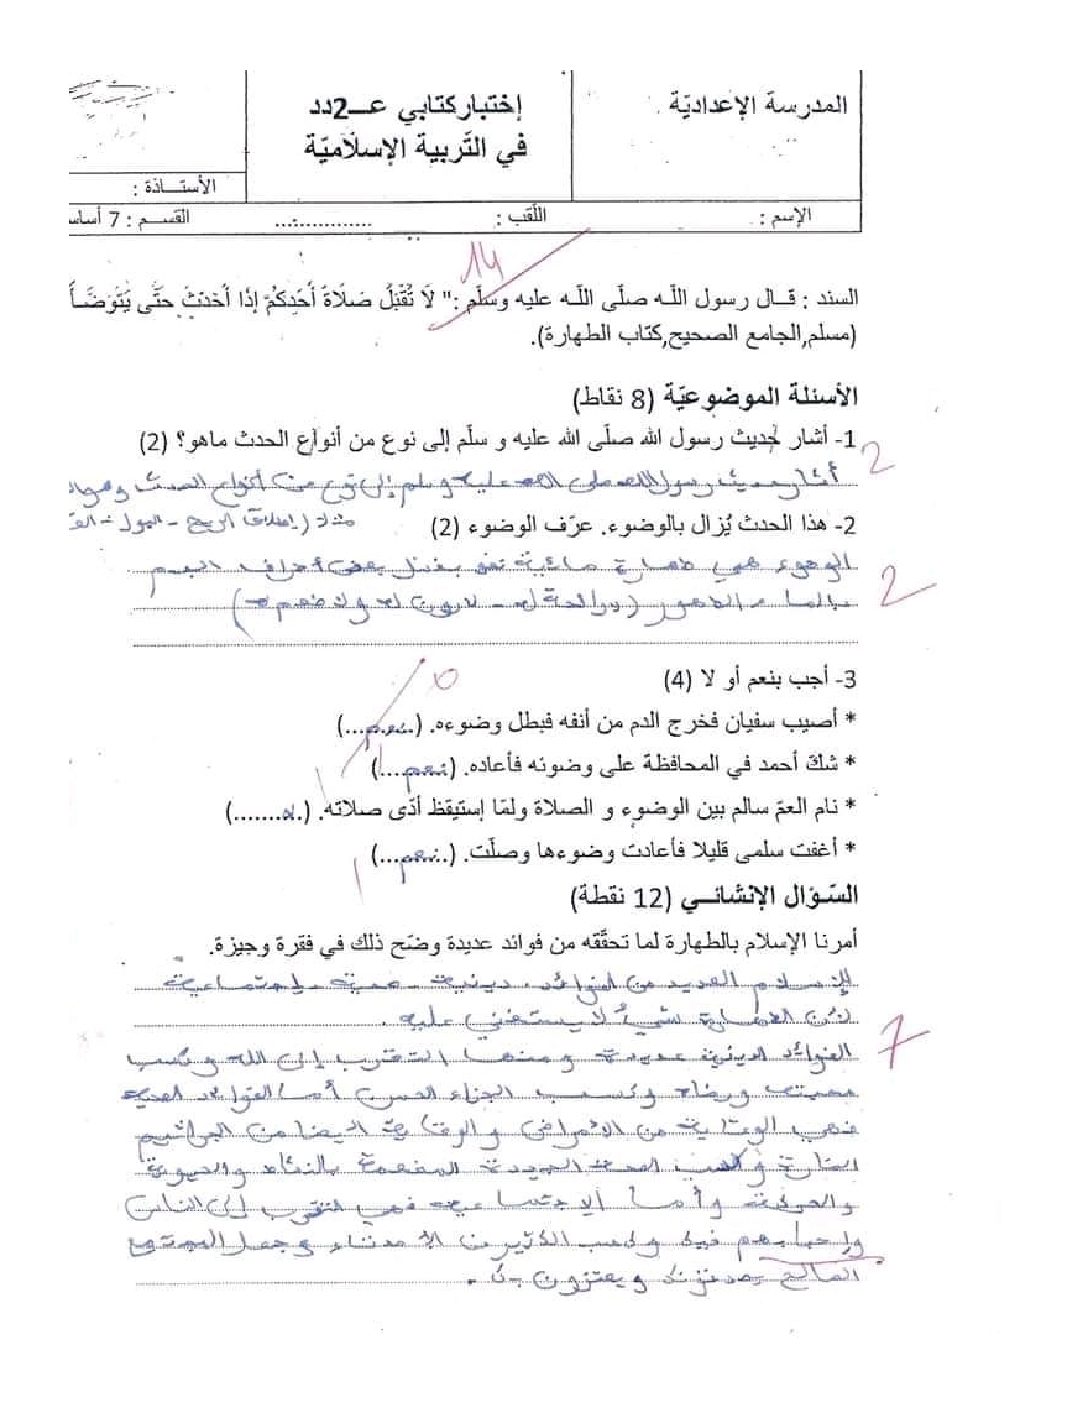 المدرسة الإعداديّة
إختبار كتابي عـــ2دد
في التّربية الإسلاميّة
الأستــاذة :
الإسم :
اللّقب : ................
القســم : 7 أساس
14
السند : قــال رسول اللّـه صلّى اللّـه عليه وسلّم :" لَا تُقْبَلُ صَلَاةُ أَحَدِكُمْ إِذَا أَحْدَثَ حَتَّى يَتَوَضَّأَ
(مسلم,الجامع الصحيح,كتاب الطهارة).
الأسئلة الموضوعيّة (8 نقاط)
1- أشار حديث رسول الله صلّى الله عليه و سلّم إلى نوع من أنواع الحدث ماهو؟ (2)
2
أشار حديث رسول الله صلى الله عليه و سلم إلى نوع من أنواع الحدث وهو
2- هذا الحدث يُزال بالوضوء. عرّف الوضوء (2)
مثل (إطلاق الريح - البول -
الوضوء هي طهارة مائية تعنى بغسل بعض أطراف الجسم
بالماء الطهور ( لا رائحة له - لا لون له ولا طعم له)
2
3- أجب بنعم أو لا (4)
0
* أصيب سفيان فخرج الدم من أنفه فبطل وضوءه. (..نعم...)
* شك أحمد في المحافظة على وضوئه فأعاده. (.نعم...)
1
* نام العمّ سالم بين الوضوء و الصلاة ولمّا إستيقظ أدّى صلاته. (.لا.......)
1
* أغفت سلمى قليلا فأعادت وضوءها وصلّت. (..نعم...)
1
السّؤال الإنشائــي (12 نقطة)
أمرنا الإسلام بالطهارة لما تحقّقه من فوائد عديدة وضّح ذلك في فقرة وجيزة.
للإسلام العديد من الفوائد . دينية - صحية - إجتماعية
لأن الطهارة شيءٌ لا يستغنى عليه .
7
الفوائد الدينية عديدة ومنها التقرب إلى الله وكسب
محبته ورضاه وكسب الجزاء الحسن أما الفوائد الصحية
فهي الوقاية من الأمراض والوقاية أيضا من الجراثيم
الضارة وكسب الصحة الجيدة المفعمة بالنشاط والحيوية
والحركة وأما الإجتماعية فهي التقرب إلى الناس
وإحبابهم فيك وكسب الكثير من الأصدقاء وجعل المجتمع
الصالح يصدقونك ويعتزون بك .